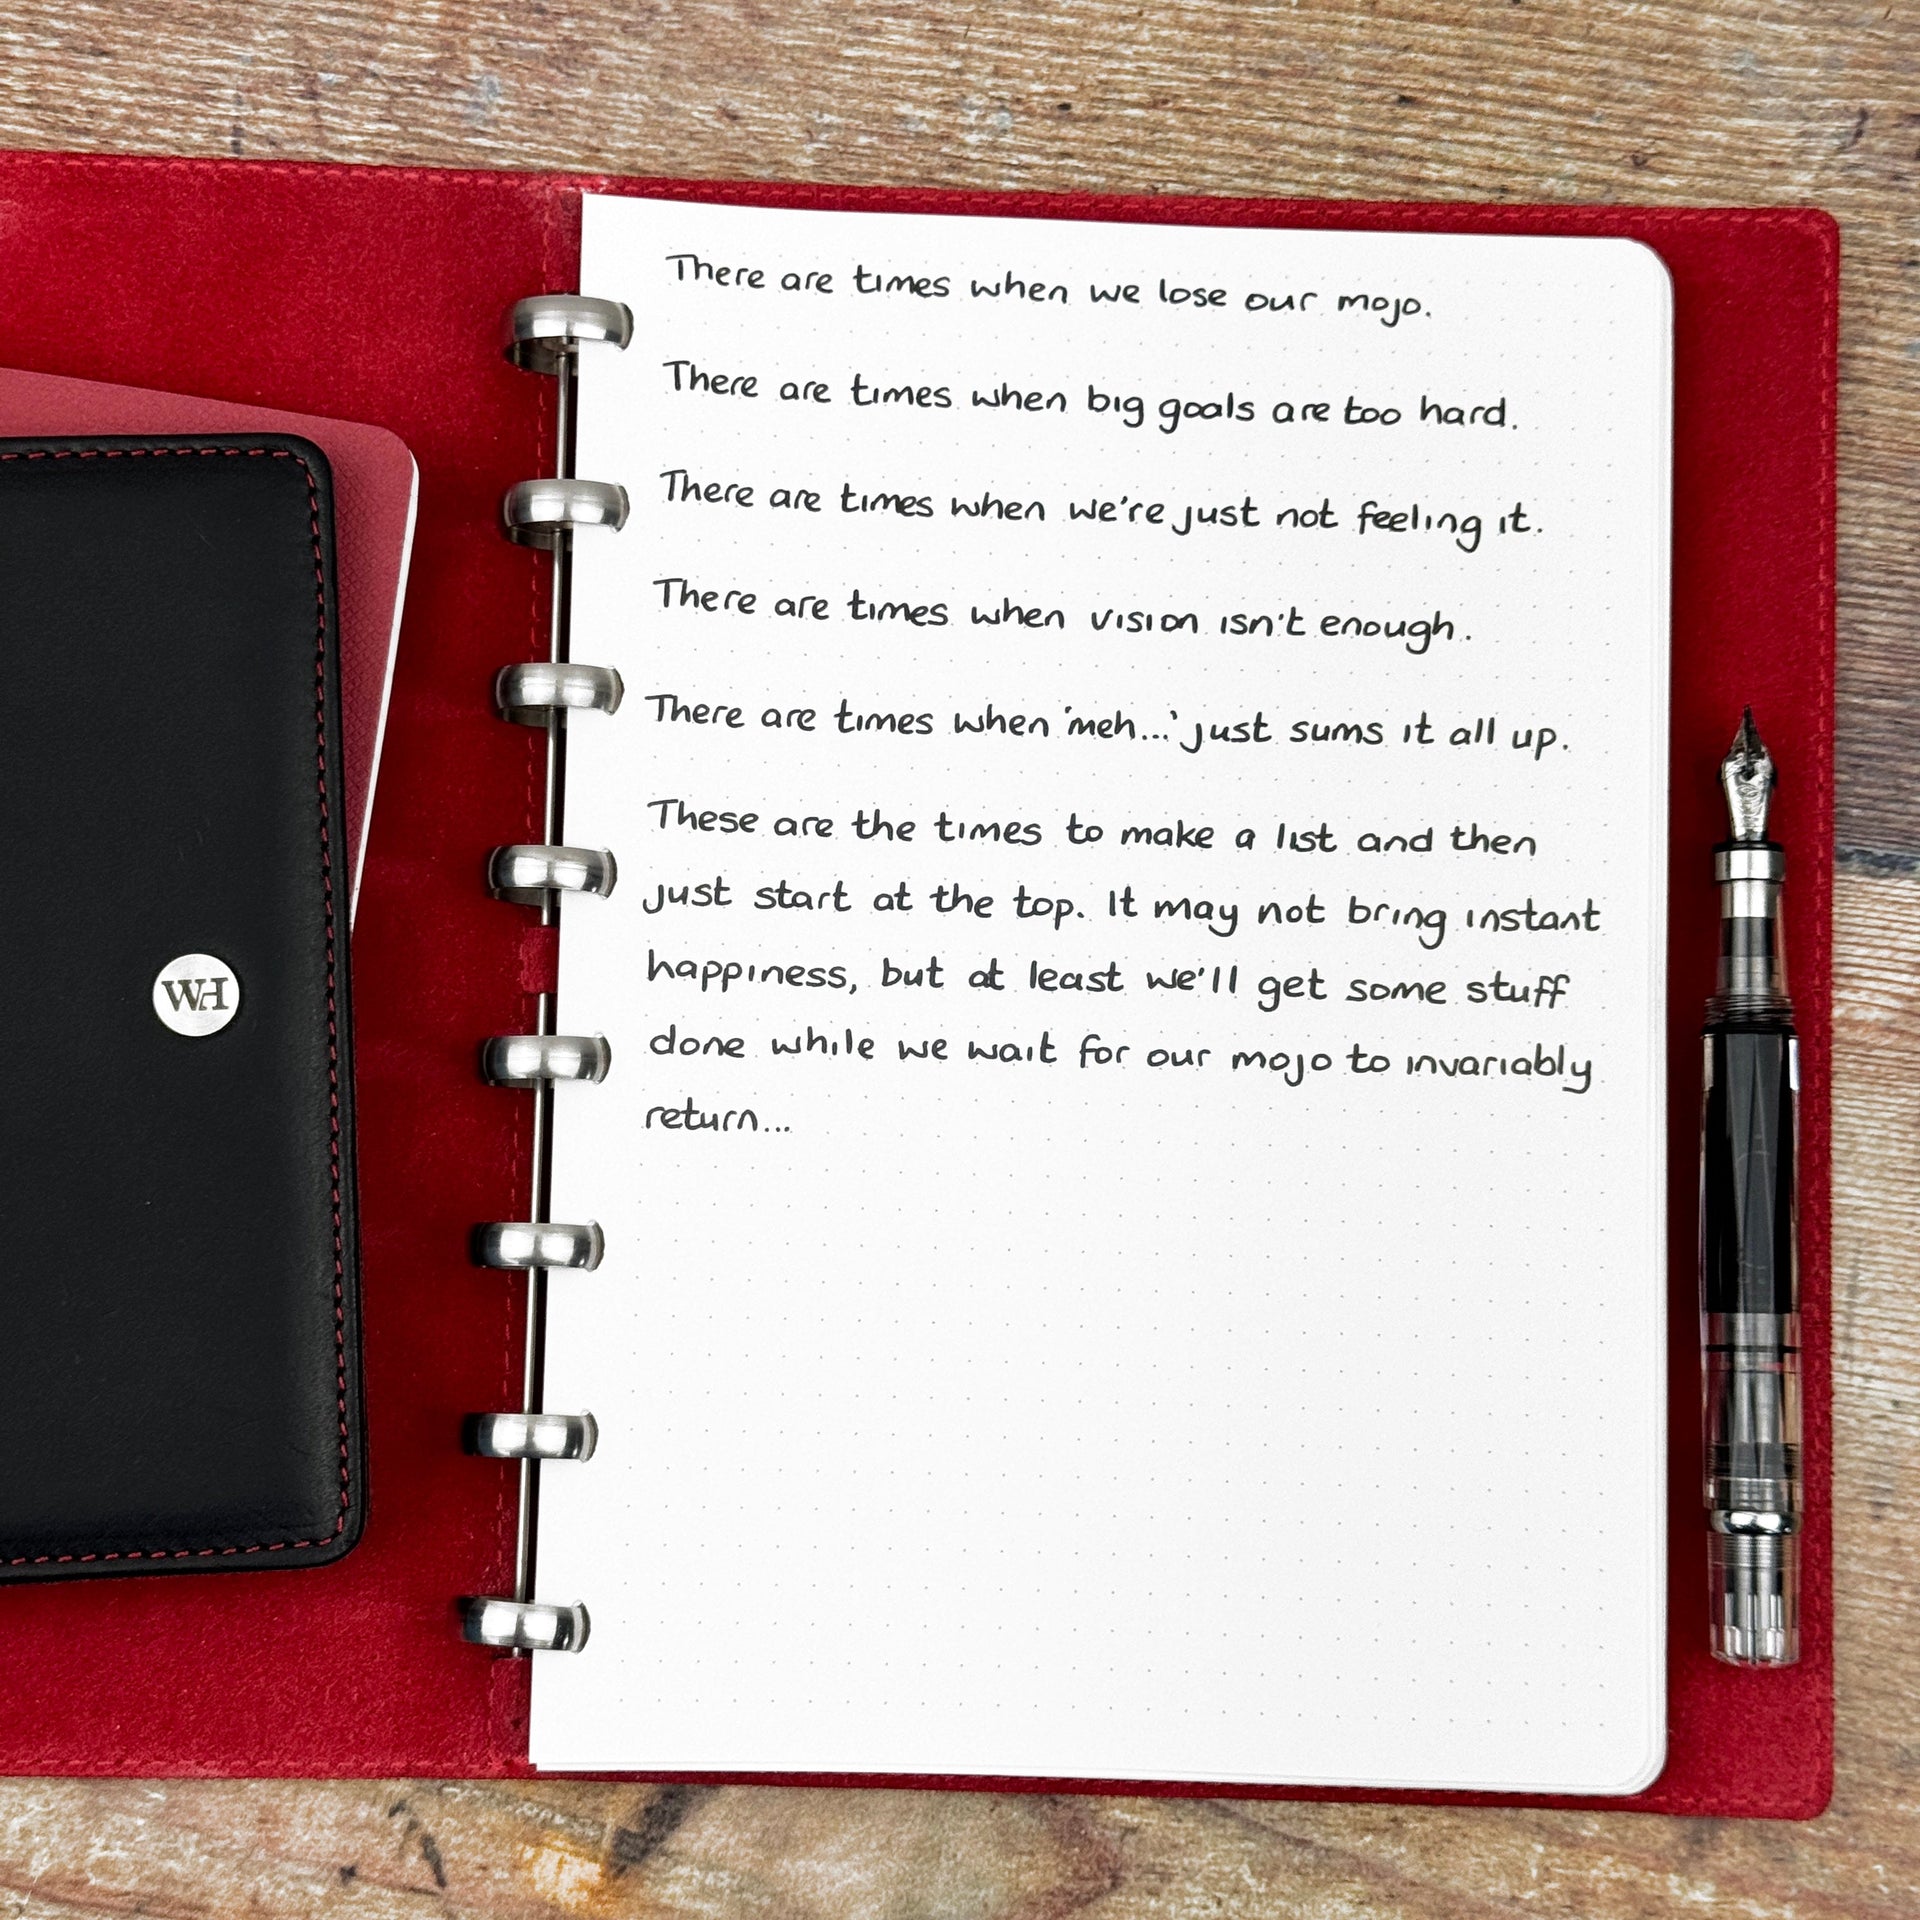 There are times when we lose our mojo.
There are times when big goals are too hard.
There are times when we're just not feeling it.
There are times when vision isn't enough.
There are times when 'meh...' just sums it all up.
These are the times to make a list and then
just start at the top. It may not bring instant
happiness, but at least we'll get some stuff
done while we wait for our mojo to invariably
return...
WH